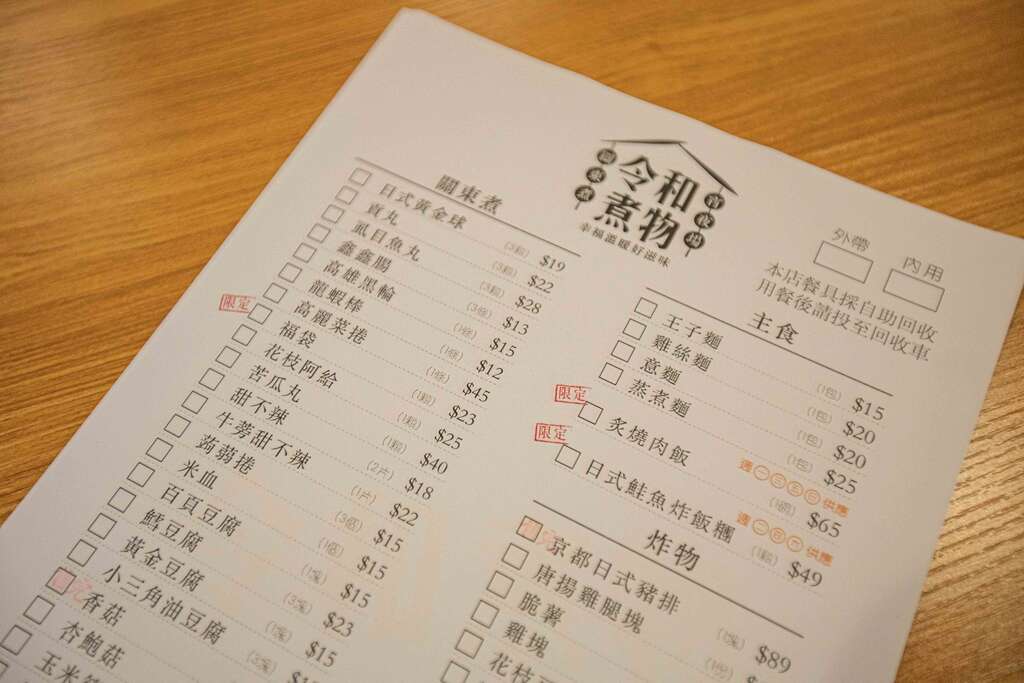 令和煮物
關東煮
宵夜場
幸福溫暖好滋味
外帶
內用
本店餐具採自助回收
用餐後請投至回收車
關東煮
日式黃金球 (3顆) $19
貢丸 (3顆) $22
虱目魚丸 (3顆) $28
鑫鑫腸 (3條) $13
高雄黑輪 (1條) $15
龍蝦棒 (1條) $12
限定 高麗菜捲 $45
福袋 (1顆) $23
花枝阿給 (1顆) $25
苦瓜丸 (1顆) $40
甜不辣 (2片) $18
牛蒡甜不辣 (1片) $22
蒟蒻捲 (3個) $15
米血 (1個) $15
百頁豆腐 (1塊) $15
鱈豆腐 (3塊) $23
黃金豆腐 (1塊) $15
小三角油豆腐 (2塊)
香菇
杏鮑菇
玉米
主食
王子麵 (1包) $15
雞絲麵 (1包) $20
意麵 (1包) $20
蒸煮麵 $25
限定 炙燒肉飯 供應 $65
限定 日式鮭魚炸飯糰 供應 (1顆) $49
炸物
京都日式豬排 (1塊) $89
唐揚雞腿塊 (1份)
脆薯
雞塊
花枝